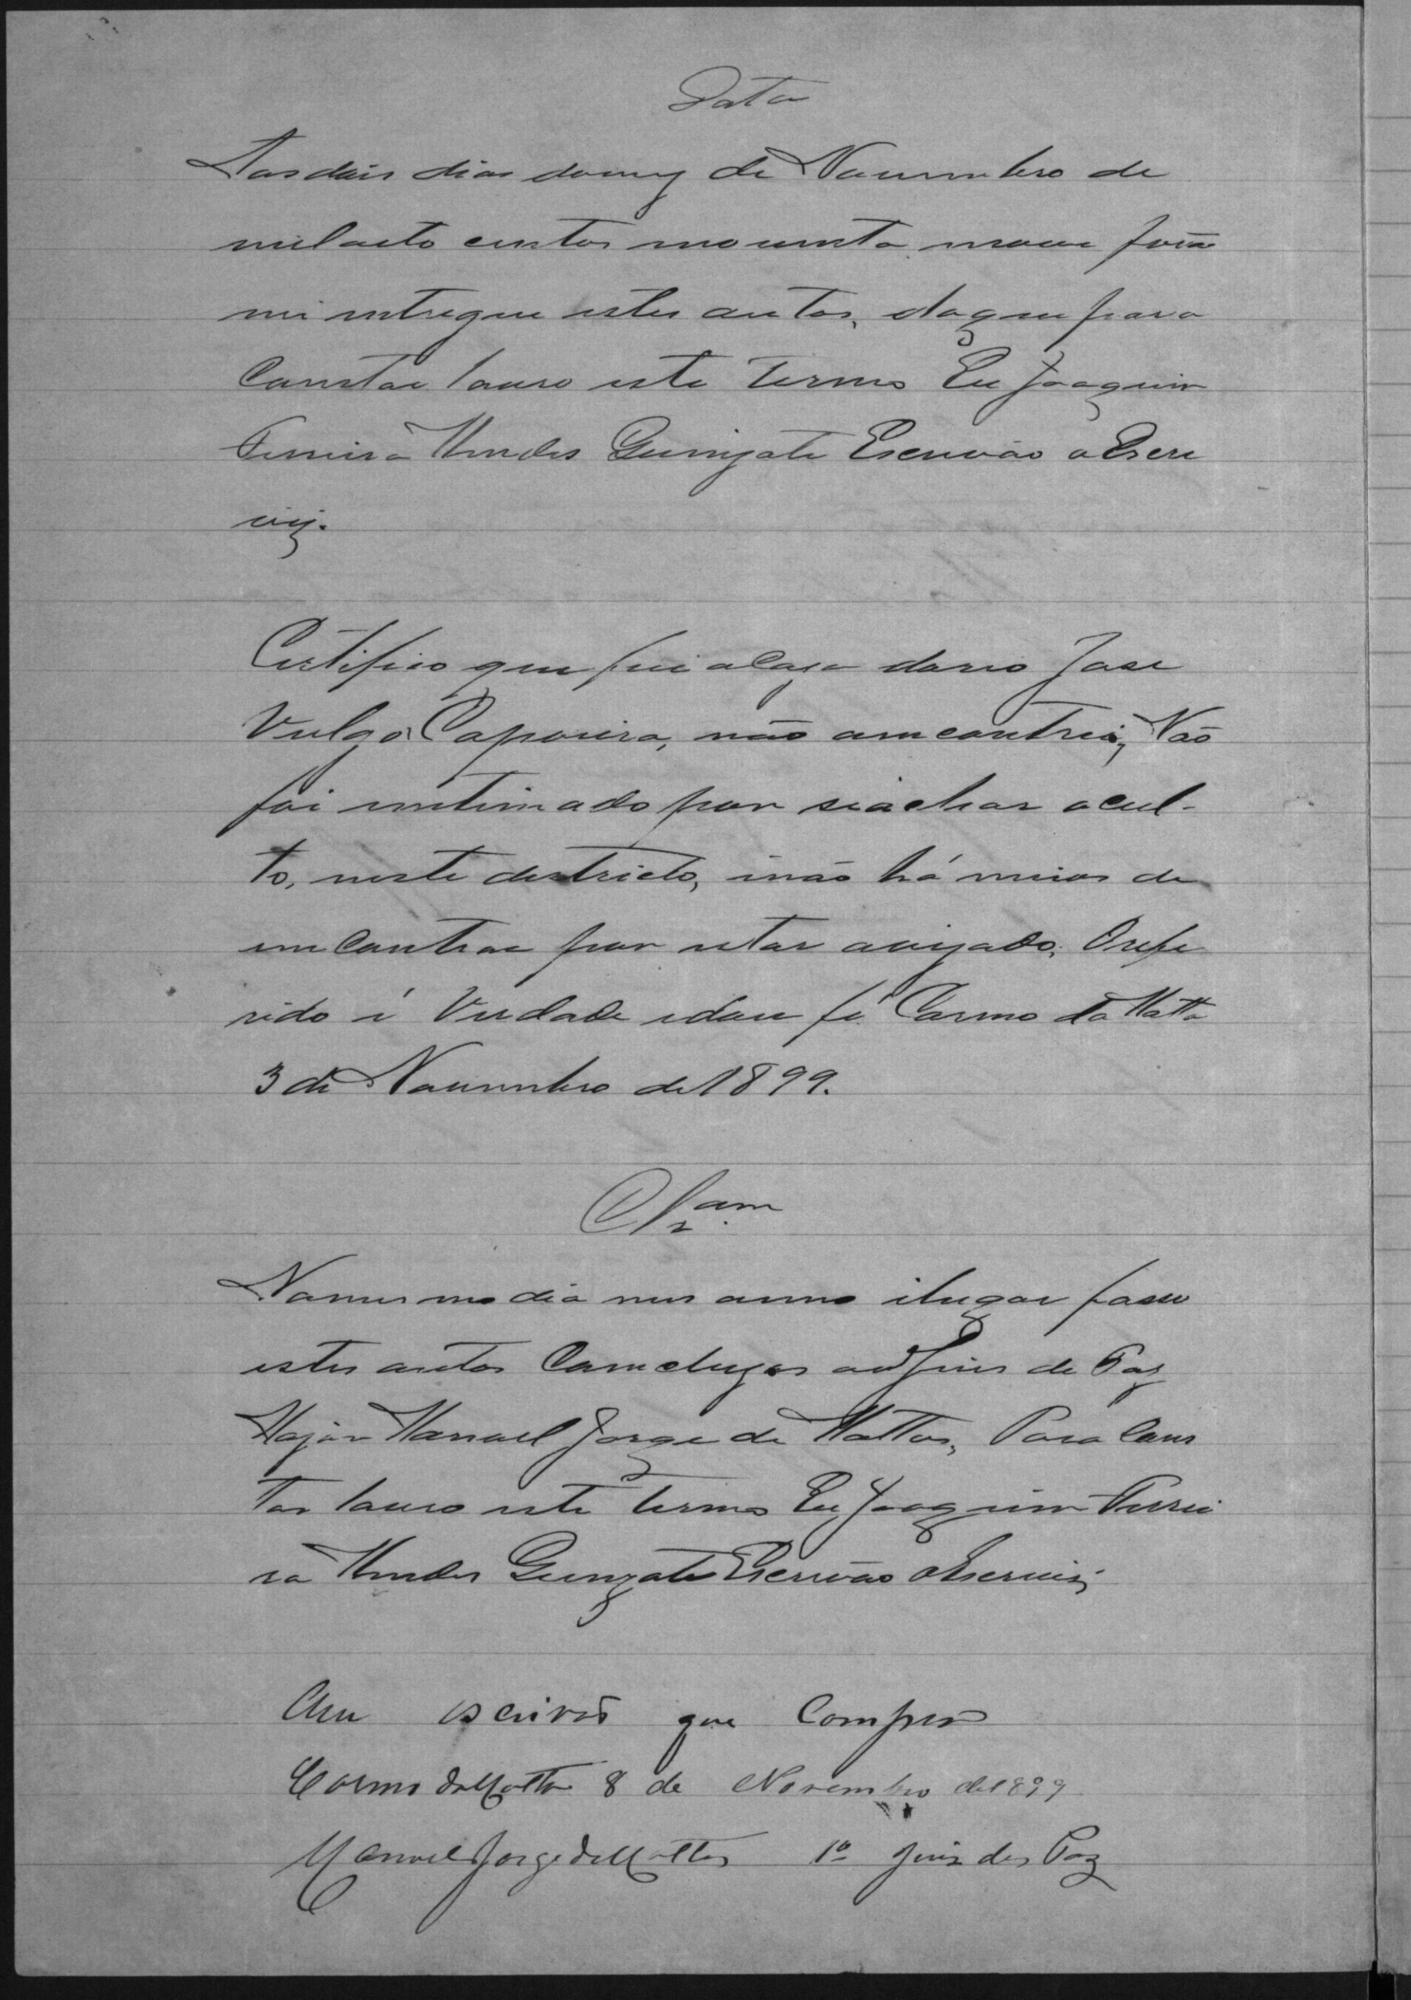 Data
Aos dois dias do mez de Novembro de
mil oito centos noventa nove foi
mi entregue estes autos, do que para
Constar lavro este termo Eu Joaquim
Ferreira Mendes Escrivão o Escre
vij.
Certifico que fui a caza do reo Jose
Vulgo Capoeira, não a emcontrei, Não
foi intimado por si achar ocul-
to, neste destricto, i não há meios de
emcontrar por estar avizado. O refe
rido é Verdade e dou fé Carmo da Matta
3 de Novembro de 1899.
Clzam
No mesmo dia mes anno i lugar fasso
estes autos Comcluzos ao Juis de Paz
Major Manoel Jorge de Mattos, Para Cons
tar lavro este termo Eu Joaquim Ferrei
ra Mendes Escrivão o Escrevij
escrivão que Compra
Carmo da Matta 8 de Novembro de 1899
Manoel Jorge de Mattos 1º Juiz de Paz